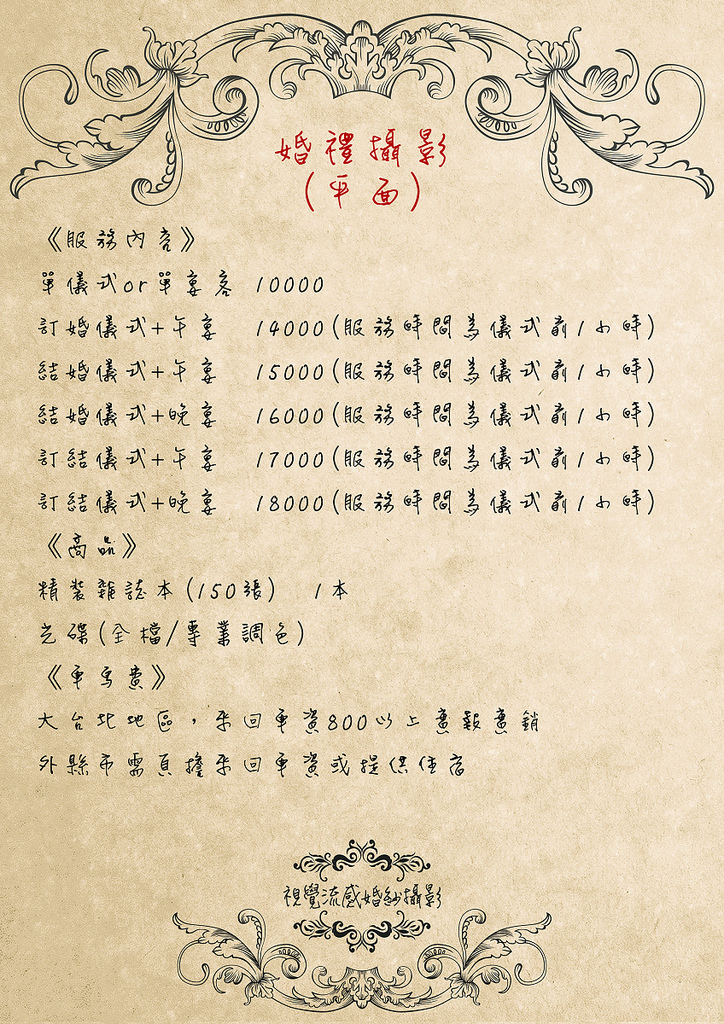 婚禮攝影
(平面)
《服務內容》
單儀式or單宴客 10000
訂婚儀式+午宴 14000(服務時間為儀式前1小時)
結婚儀式+午宴 15000(服務時間為儀式前1小時)
結婚儀式+晚宴 16000(服務時間為儀式前1小時)
訂結儀式+午宴 17000(服務時間為儀式前1小時)
訂結儀式+晚宴 18000(服務時間為儀式前1小時)
《商品》
精裝雜誌本(150張) 1本
光碟(全檔/專業調色)
《車馬費》
大台北地區，來回車資800以上實報實銷
外縣市需負擔來回車資或提供住宿
視覺流感婚紗攝影